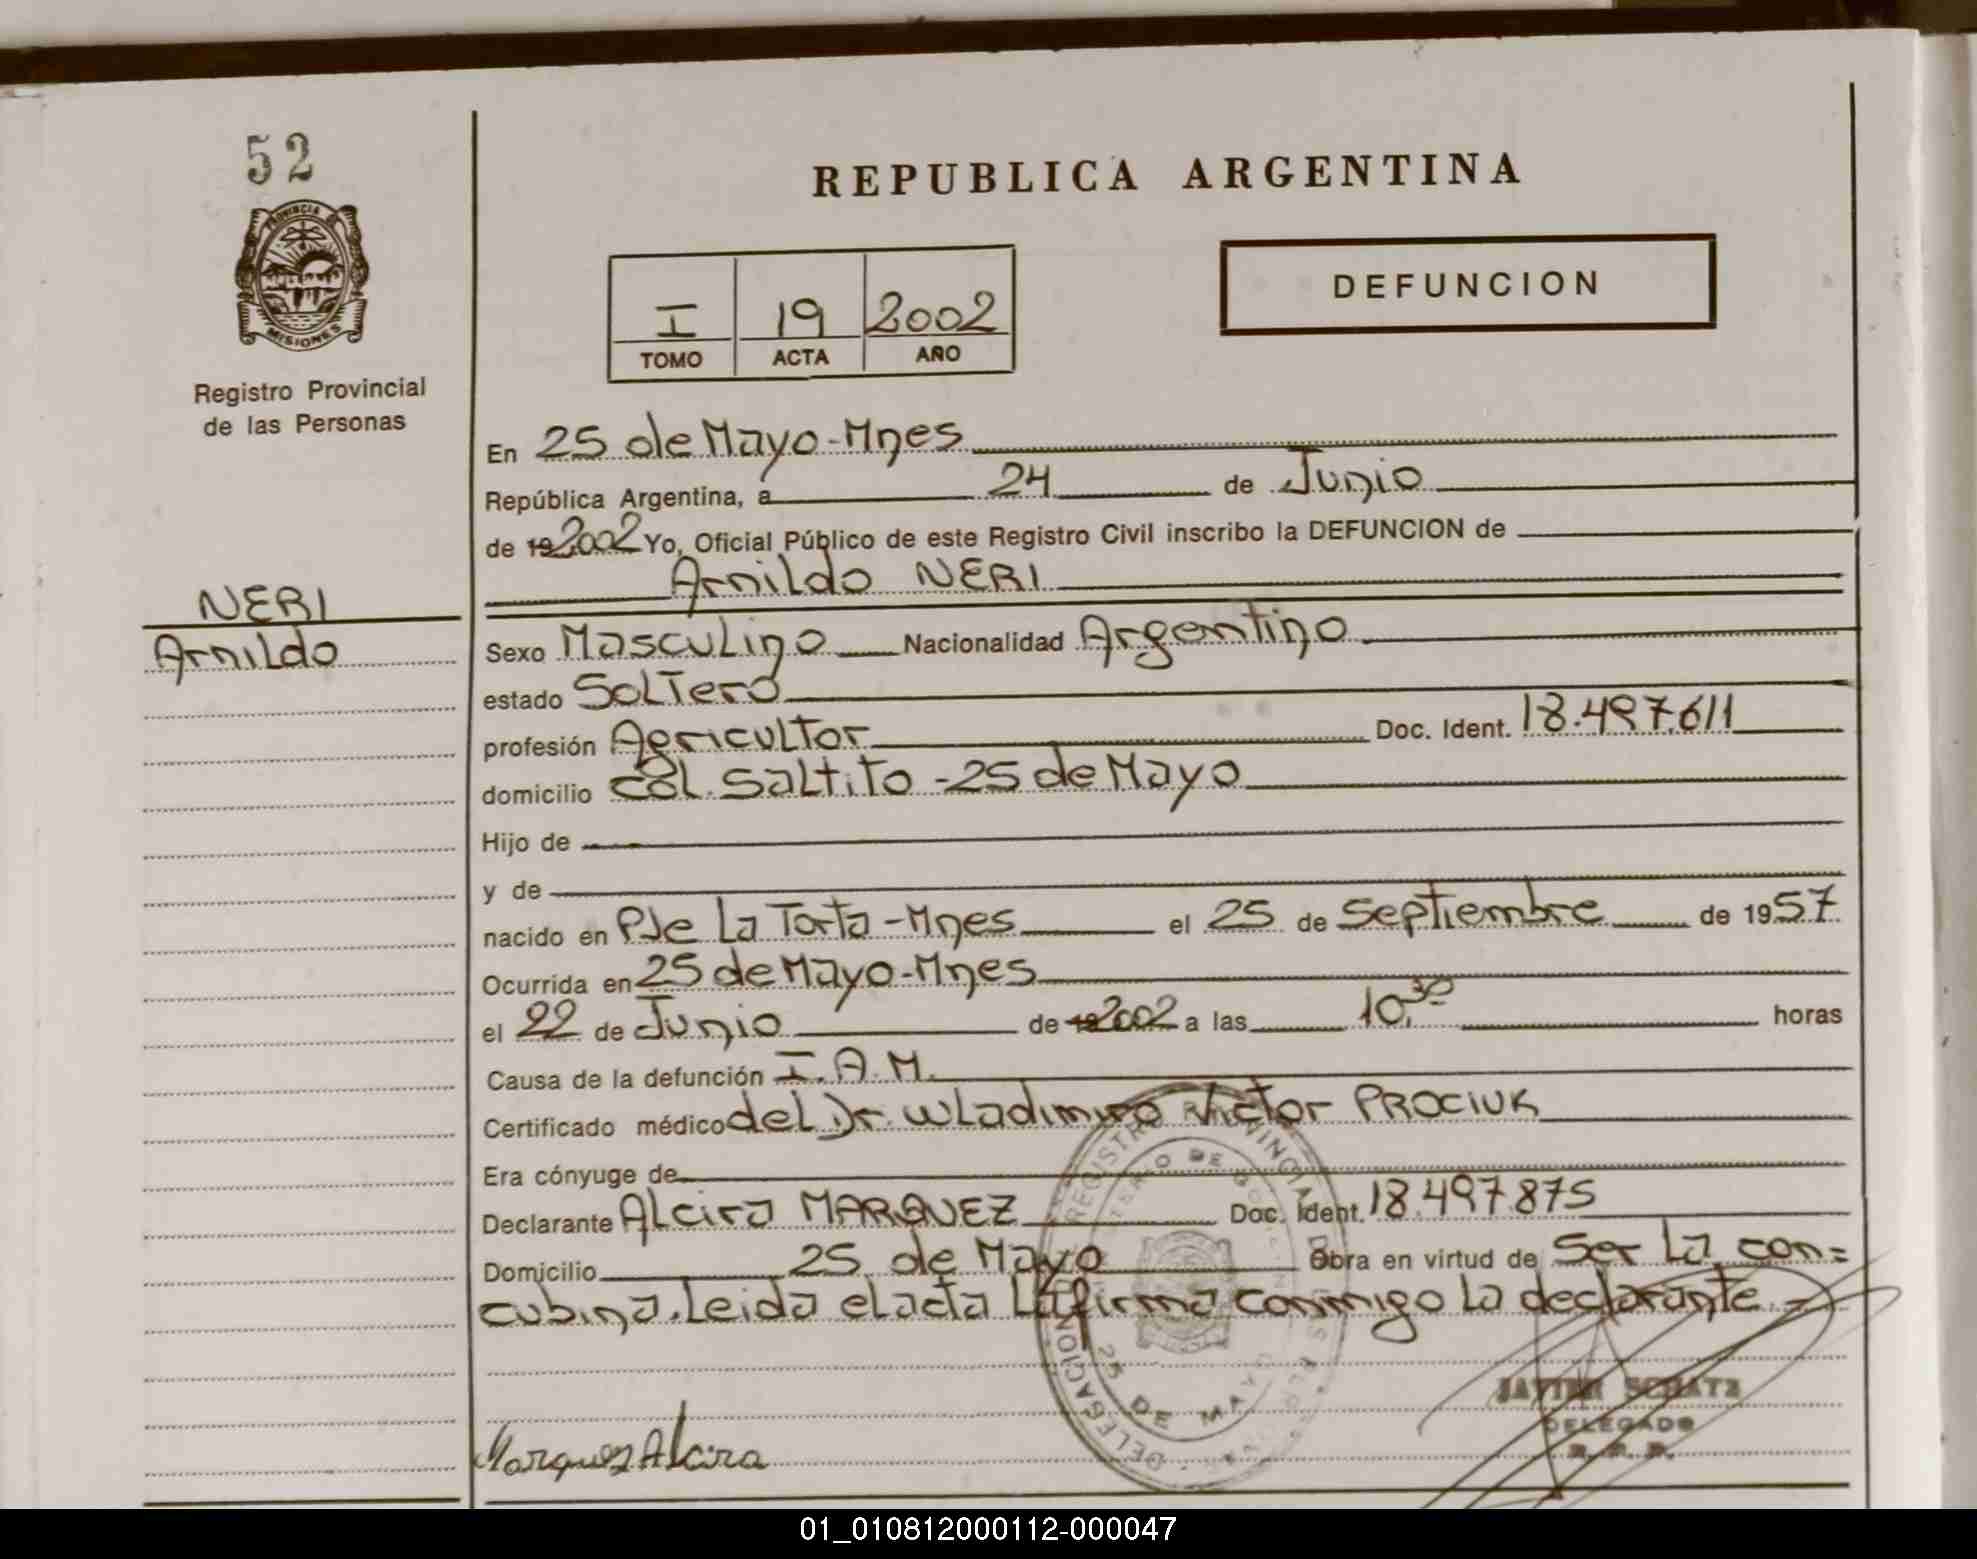 52
PROVINCIA DE
MISIONES
Registro Provincial
de las Personas
NERI
Arnildo
REPUBLICA ARGENTINA
I 19 2002
TOMO ACTA AÑO
DEFUNCION
En 25 de Mayo-Mnes
República Argentina, a 24 de Junio
de 19 2002 Yo, Oficial Público de este Registro Civil inscribo la DEFUNCION de
Arnildo NERI
Sexo Masculino Nacionalidad Argentino
estado Soltero
profesión Agricultor Doc. Ident. 18.497.611
domicilio Col. Saltito - 25 de Mayo
Hijo de
y de
nacido en Pje La Torta - Mnes el 25 de Septiembre de 1957
Ocurrida en 25 de Mayo-Mnes
el 22 de Junio de 19 2002 a las 10,30 horas
Causa de la defunción I.A.M.
Certificado médico del Dr. Wladimiro Victor PROCIUK
Era cónyuge de
Declarante Alcira MARQUEZ Doc. Ident. 18.497.875
Domicilio 25 de Mayo Obra en virtud de Ser La con=
cubina. Leida el acta La firma conmigo la declarante -
25 DE MAYO
JAVIER SCHATZ
DELEGADO
R. P. P.
Marquez Alcira
01_010812000112-000047